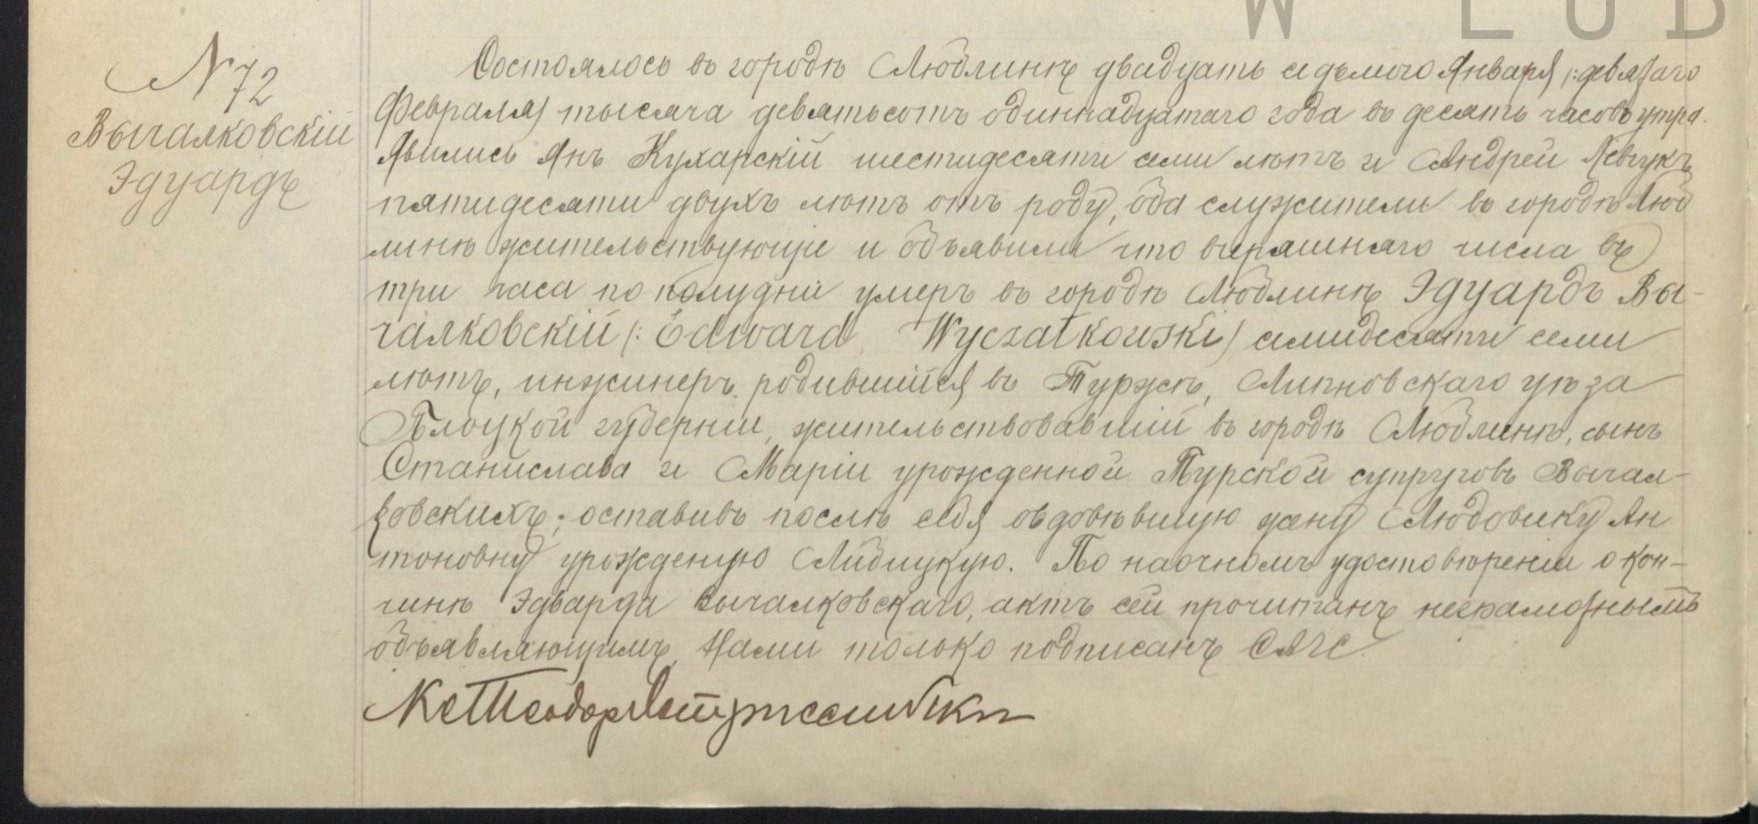 W LUB
N 72
Вычалковскій
Эдуардъ
Состоялось въ городѣ Люблинѣ двадцать седьмого Января /:девятаго
Февраля/ тысяча девятьсотъ одиннадцатаго года въ десять часовъ утра.
Явились Янъ Кухарскій шестидесяти семи лѣтъ и Андрей Левчукъ
пятидесяти двухъ лѣтъ отъ роду, оба служители въ городѣ Люб
линѣ жительствующіе и объявили что вчерашняго числа въ
три часа по полудни умеръ въ городѣ Люблинѣ Эдуардъ Вы-
чалковскій /: Edward Wyczałkowski / семидесяти семи
лѣтъ, инжинеръ родившійся въ Туржѣ, Липновскаго уѣзда
Плоцкой губерніи, жительствовавшій въ городѣ Люблинѣ, сынъ
Станислава и Маріи урожденной Турской супруговъ Вычал-
ковскихъ; оставивъ послѣ себя овдовѣвшую жену Людовику Ан
тоновну урожденую Либицкую. По наочномъ удостовѣреніи о кон-
чинѣ Эдварда Вычалковскаго, актъ сей прочитанъ неграмотнымъ
объявляющимъ, Нами только подписанъ